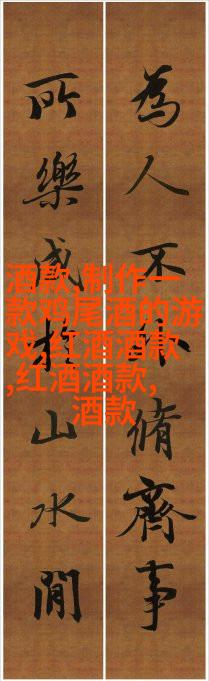 為人不外脩齊事
所樂山水間
酒款,制作一
款鸡尾酒的游
戏,红酒酒款
,红酒酒款,
酒款